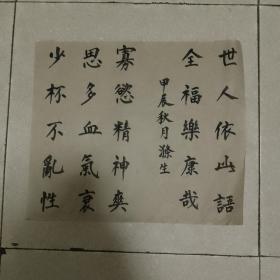 世人依此語
全福樂康哉
甲辰秋月滌生
寡慾精神爽
思多血氣衰
少杯不亂性